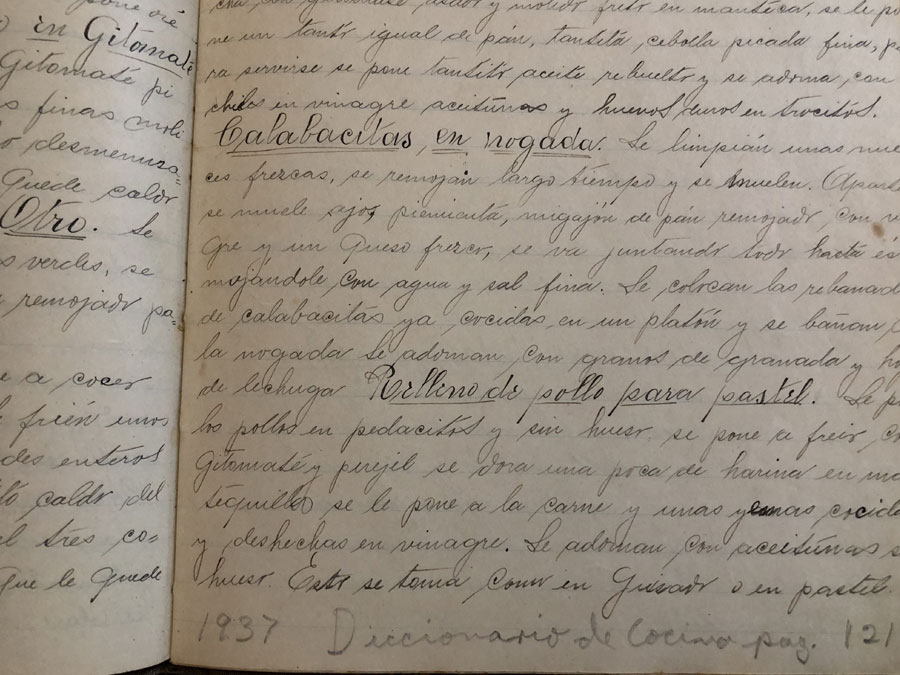 pone ore
en Gitomate
Gitomate pi
s finas moli
o desmenusa=
Quede caldo
Otro. Se
s verdes, se
remojado pa=
e a cocer
frien unos
des enteros
to caldo del
el tres co=
que le quede
asado y molido frito en manteca, se le po
ne un tanto igual de pán, tantita, cebolla picada fina, pa
ra servirse se pone tantito aceite rebuelto y se adorna, con
chiles en vinagre aceitunas y huevos duros en trocitos.
Calabacitas en nogada. Se limpián unas nue
ces frezcas, se remoján largo tiempo y se muelen. Aparte
se muele ajos, pimienta, migajón de pán remojado, con vi
gre y un queso frezco, se va juntando todo hasta és
mojándole con agua y sal fina. Se colocan las rebanad
de calabacitás ya cocidas, en un platón y se bañan
la nogada se adornan, con granos de granada y ho
de lechuga Relleno de pollo para pastel. Se p
los pollos en pedacitos y sin hueso, se pone a freir, co
Gitomaté y perejil se dora una poca de harina en ma
tequilla se le pone a la carne y unas yemas cocida
y deshechas en vinagre. Se adornan con aceitúnas s
hueso. Esto se toma como en Guisado o en pastel.
1937 Diccionario de Cocina pag. 121